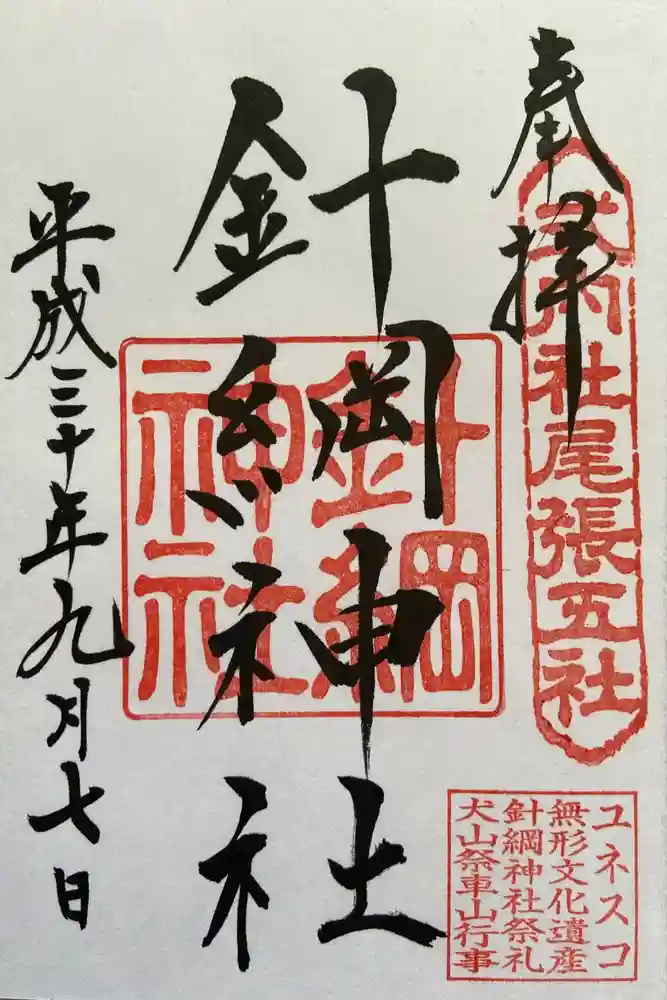 奉拝
式内社尾張五社
針綱神社
針綱神社
平成三十年九月七日
ユネスコ
無形文化遺産
針綱神社祭礼
犬山祭車山行事